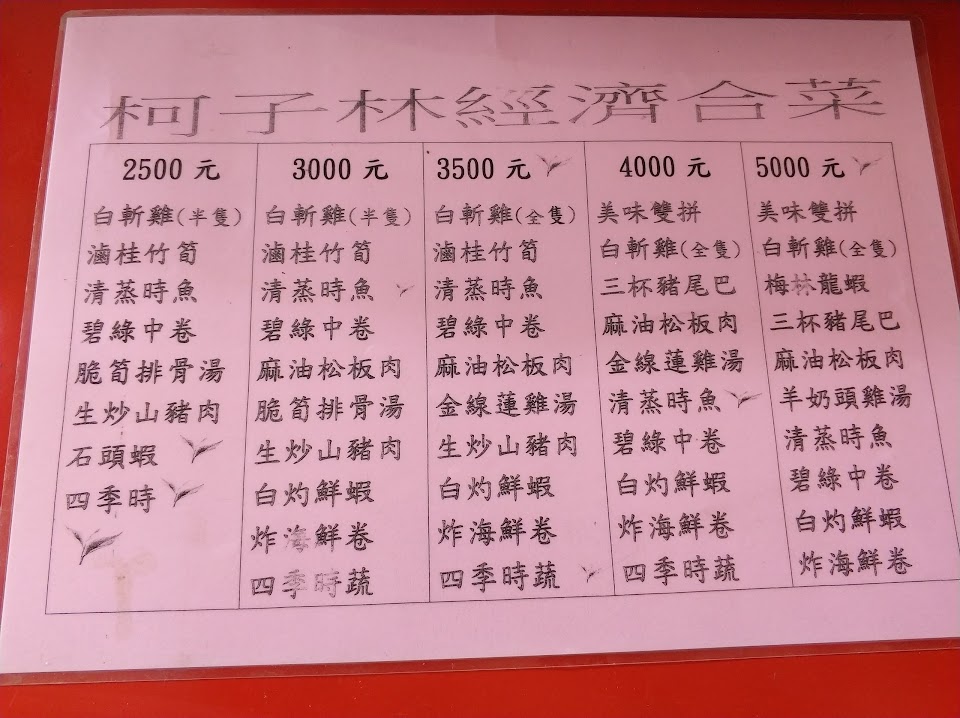 柯子林經濟合菜
2500 元
白斬雞(半隻)
滷桂竹筍
清蒸時魚
碧綠中卷
脆筍排骨湯
生炒山豬肉
石頭蝦
四季時
3000 元
白斬雞(半隻)
滷桂竹筍
清蒸時魚
碧綠中卷
麻油松板肉
脆筍排骨湯
生炒山豬肉
白灼鮮蝦
炸海鮮卷
四季時蔬
3500 元
白斬雞(全隻)
滷桂竹筍
清蒸時魚
碧綠中卷
麻油松板肉
金線蓮雞湯
生炒山豬肉
白灼鮮蝦
炸海鮮卷
四季時蔬
4000 元
美味雙拼
白斬雞(全隻)
三杯豬尾巴
麻油松板肉
金線蓮雞湯
清蒸時魚
碧綠中卷
白灼鮮蝦
炸海鮮卷
四季時蔬
5000 元
美味雙拼
白斬雞(全隻)
梅林龍蝦
三杯豬尾巴
麻油松板肉
羊奶頭雞湯
清蒸時魚
碧綠中卷
白灼鮮蝦
炸海鮮卷